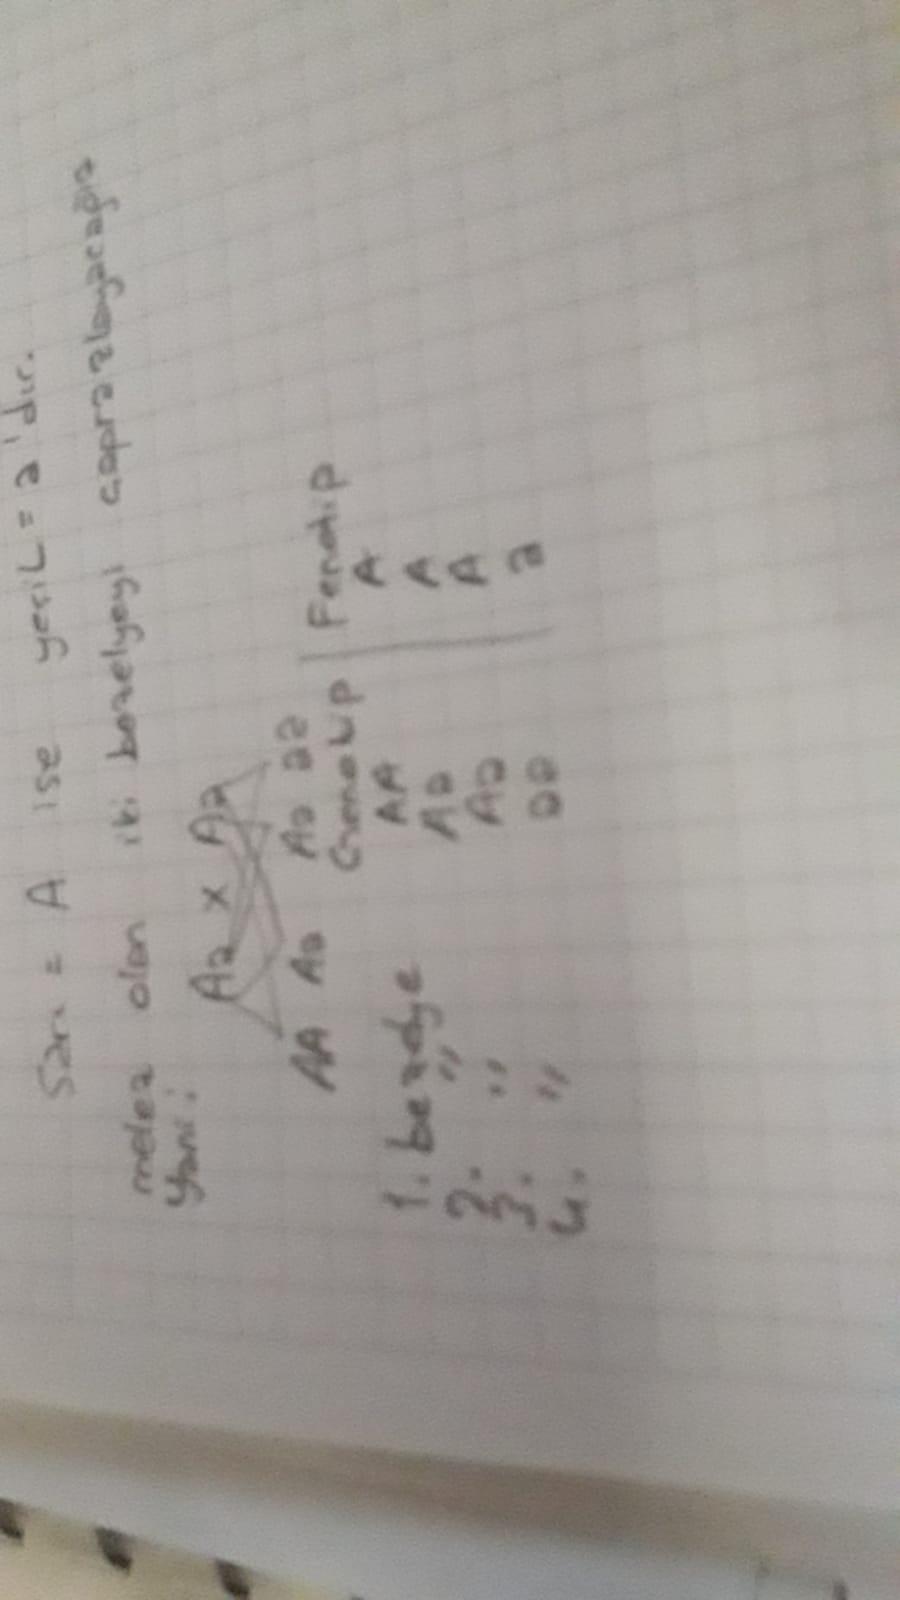 Sarı = A ise yeşil = a'dır.
melez olan iki bezelyeyi çaprazlayacağız
Yani:
Aa x Aa
AA Aa Aa aa
Genotip | Fenotip
1. bezelye AA A
2. " Aa A
3. " Aa A
4. " aa a